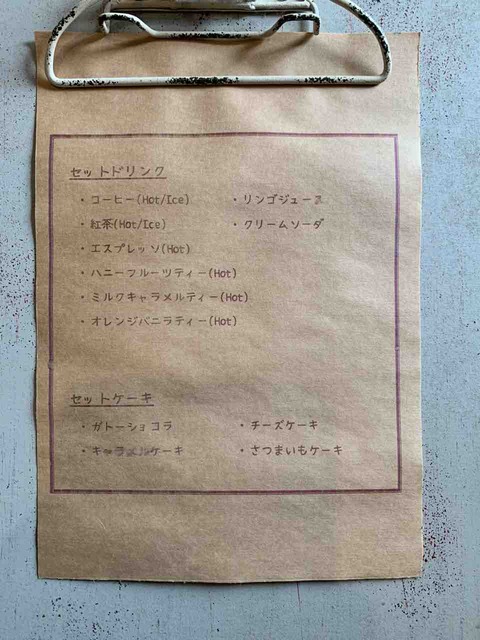 セットドリンク
・コーヒー(Hot/Ice)
・紅茶(Hot/Ice)
・エスプレッソ(Hot)
・ハニーフルーツティー(Hot)
・ミルクキャラメルティー(Hot)
・オレンジバニラティー(Hot)
・リンゴジュース
・クリームソーダ
セットケーキ
・ガトーショコラ
・キャラメルケーキ
・チーズケーキ
・さつまいもケーキ